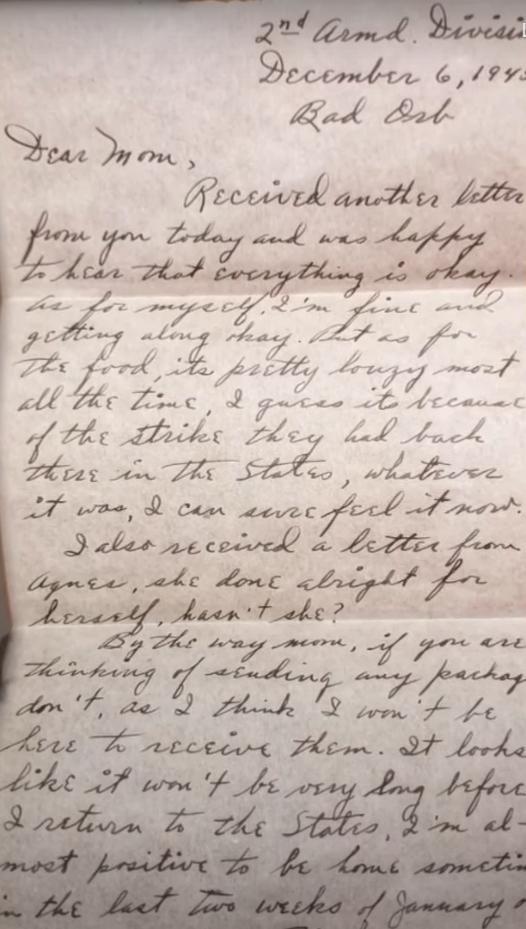 2nd Armd. Divisi
December 6, 194
Bad Orb
Dear Mom,
Received another letter
from you today and was happy
to hear that everything is okay.
As for myself, I'm fine and
getting along okay. But as for
the food, its pretty louzy most
all the time, I guess its because
of the strike they had back
there in the States, whatever
it was, I can sure feel it now.
I also received a letter from
Agnes, she done alright for
herself, hasn't she?
By the way mom, if you are
thinking of sending any packag
don't, as I think I won't be
here to receive them. It looks
like it won't be very long before
I return to the States, I'm al-
most positive to be home sometim
in the last two weeks of January o